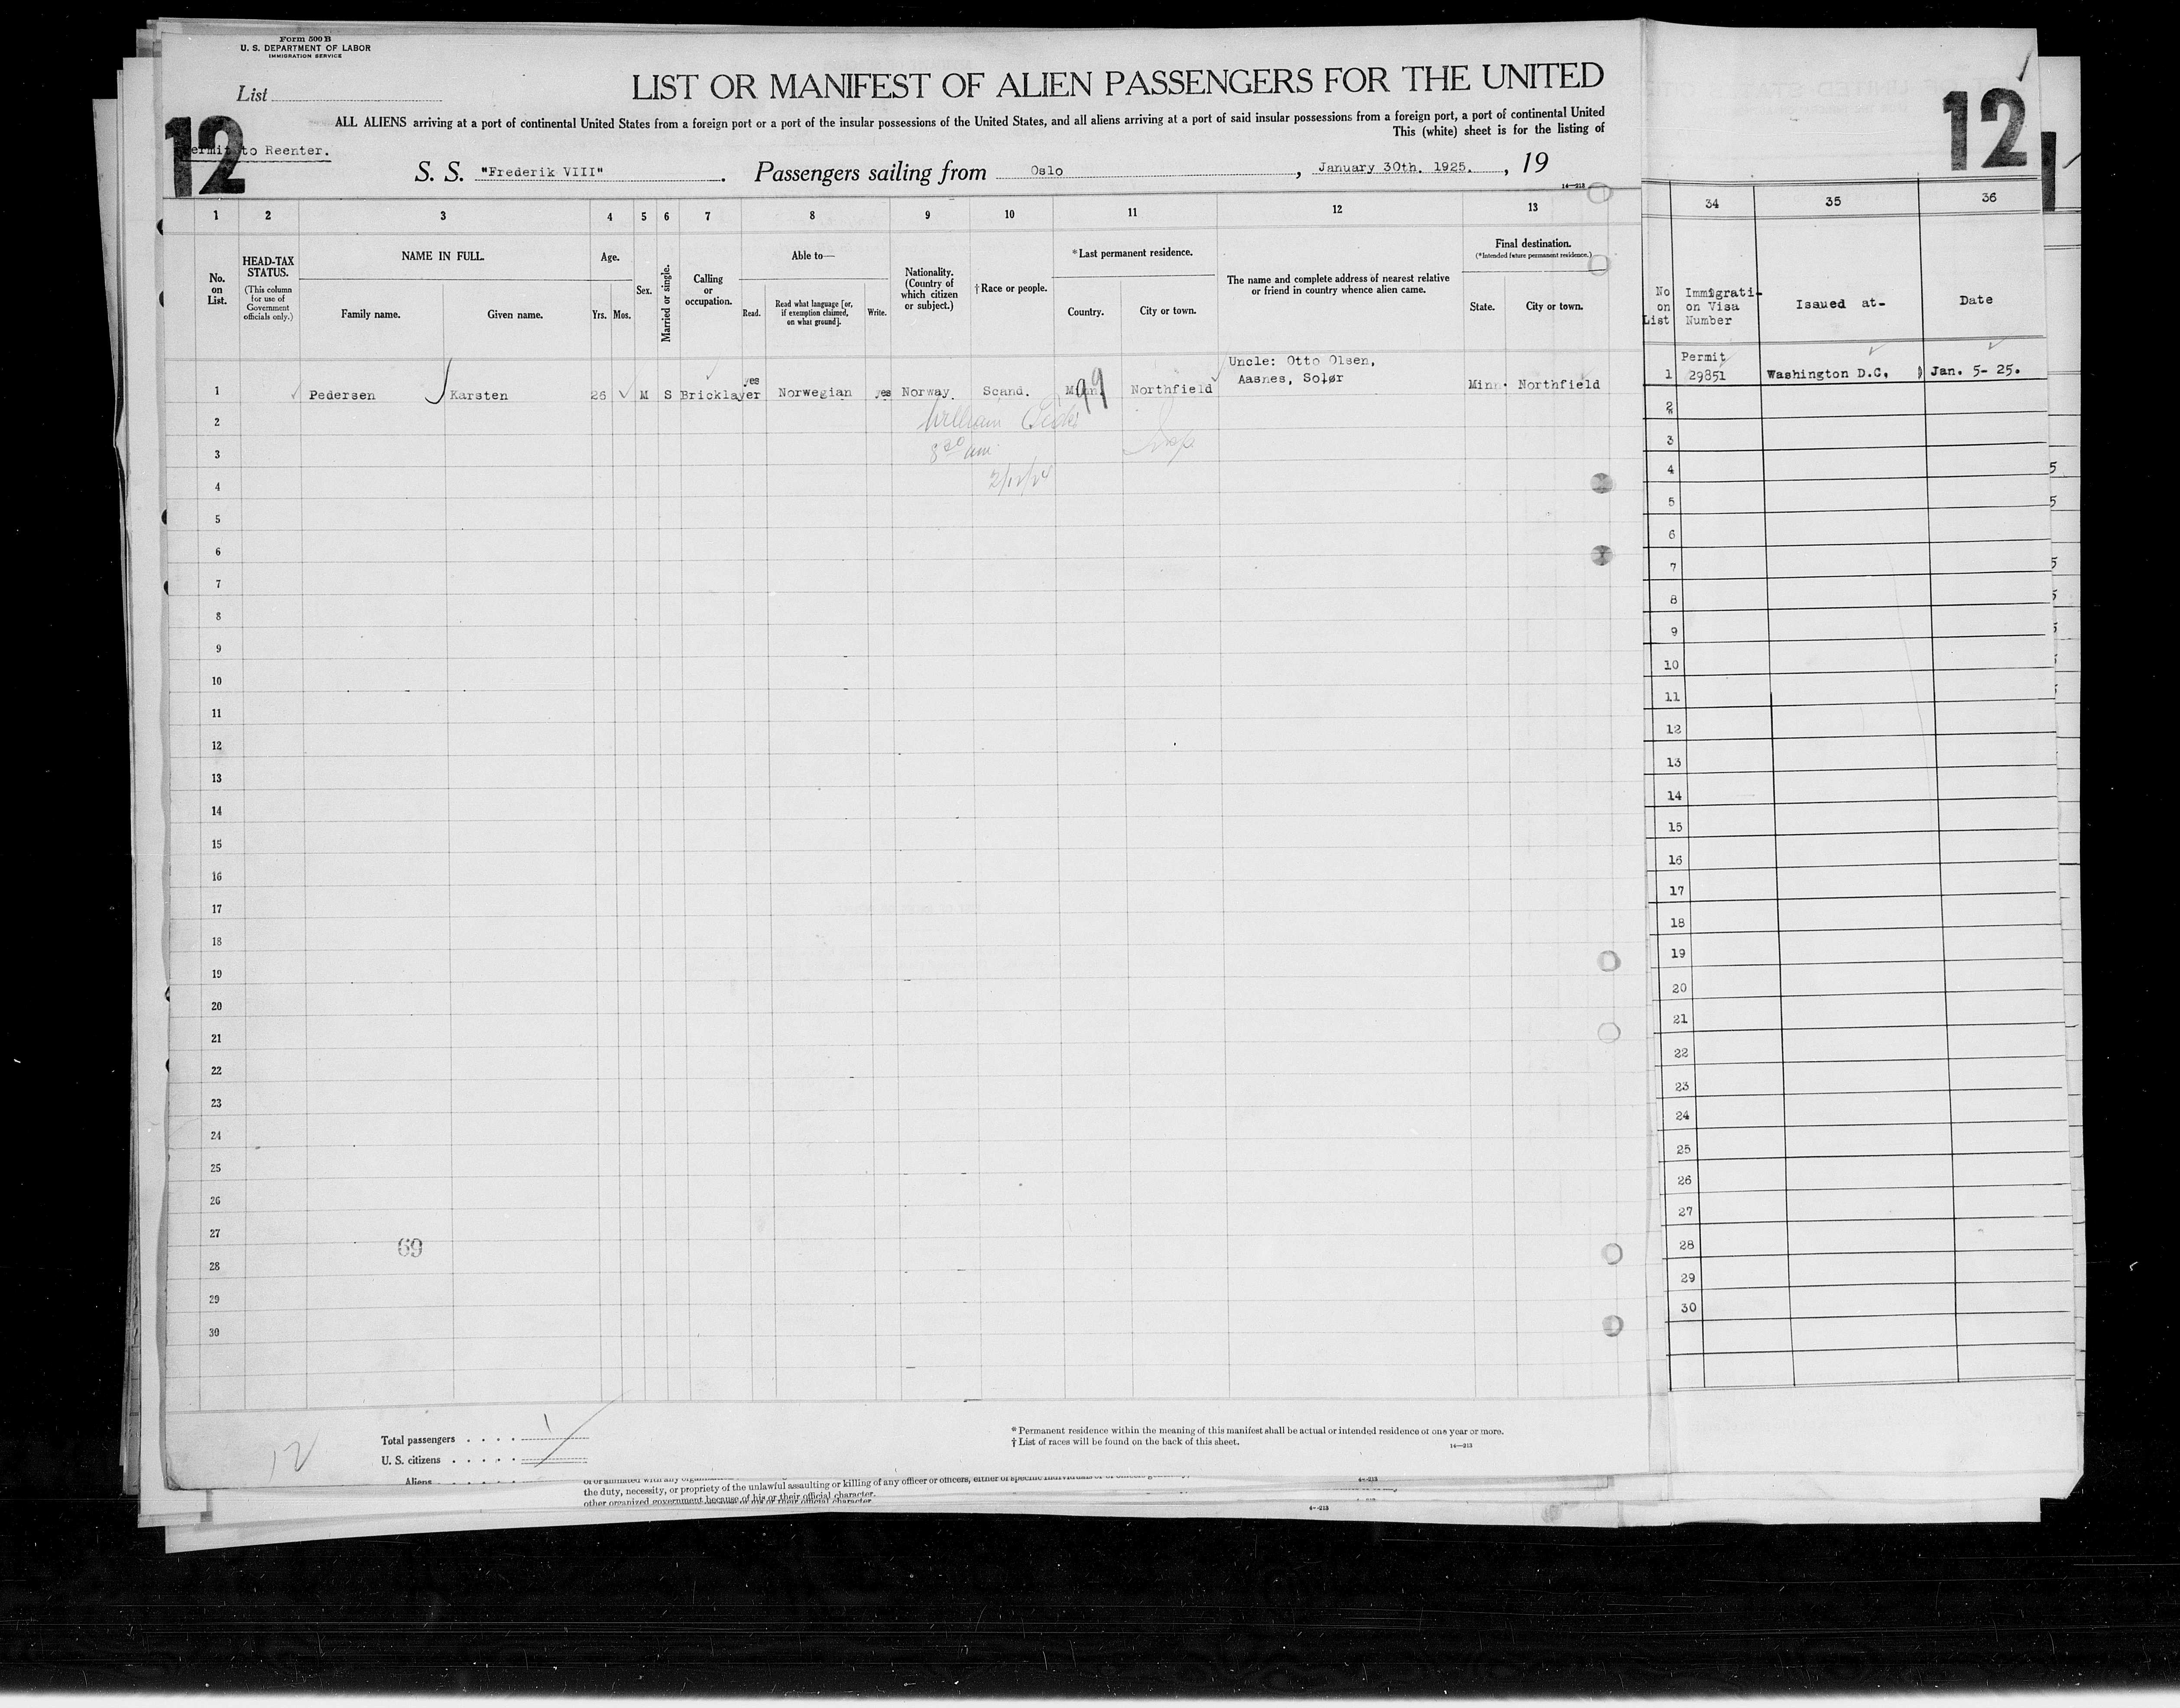 Form 500 B
U. S. DEPARTMENT OF LABOR
IMMIGRATION SERVICE
List
LIST OR MANIFEST OF ALIEN PASSENGERS FOR THE UNITED
ALL ALIENS arriving at a port of continental United States from a foreign port or a port of the insular possessions of the United States, and all aliens arriving at a port of said insular possessions from a foreign port, a port of continental United
This (white) sheet is for the listing of
12
12
to Reenter.
S. S. "Frederik VIII". Passengers sailing from Oslo, January 30th. 1925., 19
14—213
1 2 3 4 5 6 7 8 9 10 11 12 13
34 35 36
No. on List.
HEAD-TAX STATUS.
(This column for use of Government officials only.)
NAME IN FULL.
Family name. Given name.
Age.
Yrs. Mos.
Sex.
Married or single.
Calling or occupation.
Able to—
Read. Read what language [or, if exemption claimed, on what ground]. Write.
Nationality. (Country of which citizen or subject.)
†Race or people.
*Last permanent residence.
Country. City or town.
The name and complete address of nearest relative or friend in country whence alien came.
Final destination.
(*Intended future permanent residence.)
State. City or town.
No on List
Immigrati-on Visa Number
Issued at-
Date
Uncle: Otto Olsen,
Aasnes, Solør
1 Pedersen Karsten 26 M S Bricklayer yes Norwegian yes Norway. Scand. Minn. 99 Northfield Minn. Northfield
Permit
1 29851 Washington D.C. Jan. 5- 25.
William
8 30 am
2
3
4
5
6
7
8
9
10
11
12
13
14
15
16
17
18
19
20
21
22
23
24
25
26
27
28
29
30
2
3
4
5
6
7
8
9
10
11
12
13
14
15
16
17
18
19
20
21
22
23
24
25
26
27
28
29
30
69
12
Total passengers . . . . 1
U. S. citizens . . . . .
Aliens
* Permanent residence within the meaning of this manifest shall be actual or intended residence of one year or more.
† List of races will be found on the back of this sheet.
14—213
the duty, necessity, or propriety of the unlawful assaulting or killing of any officer or officers, either of specific
other organized government because of his or their official character.
4--213